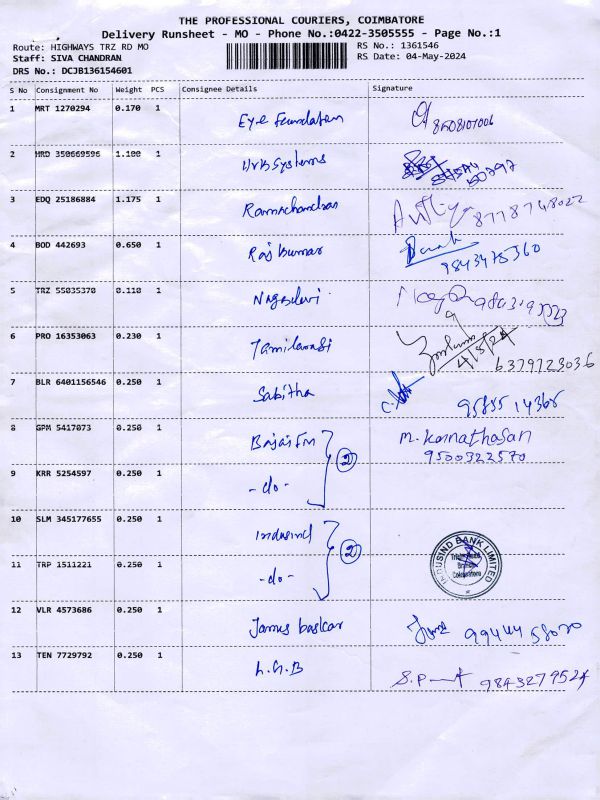 THE PROFESSIONAL COURIERS, COIMBATORE
Delivery Runsheet - MO - Phone No.:0422-3505555 - Page No.:1
Route: HIGHWAYS TRZ RD MO RS No.: 1361546
Staff: SIVA CHANDRAN RS Date: 04-May-2024
DRS No.: DCJB136154601
S No Consignment No Weight PCS Consignee Details Signature
1 MRT 1270294 0.170 1 Eye Foundation
2 HRD 350669596 1.100 1 Systems
3 EDQ 25186884 1.175 1 Ramachandran 8778748022
4 BOD 442693 0.650 1 Raj kumar 9843475360
5 TRZ 55035370 0.110 1 Nagadevi
6 PRO 16353063 0.230 1 Tamilarasi 4/5/24 6379723036
7 BLR 6401156546 0.250 1 Sabitha 9585514366
8 GPM 5417073 0.250 1 Bajaj Fin 2 M. Kannathasan
9500322570
9 KRR 5254597 0.250 1 -do-
10 SLM 345177655 0.250 1 Indusind 2 INDUSIND BANK LIMITED
11 TRP 1511221 0.250 1 -do- Branch Coimbatore
12 VLR 4573686 0.250 1 James baskar 9944458020
13 TEN 7729792 0.250 1 L.G.B 9843279524